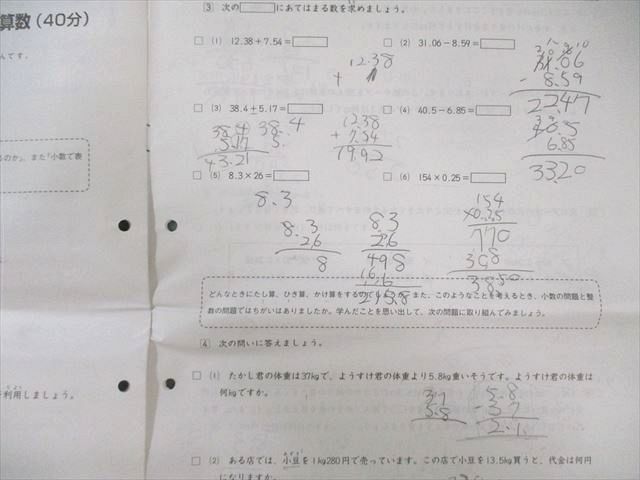 算数(40分)
んです。
るのか」、また「小数で表
利用しましょう。
3 次の にあてはまる数を求めましょう。
(1) 12.38+7.54=
(2) 31.06-8.59=
12.38
+
31.06
- 8.59
2247
(3) 38.4+5.17=
(4) 40.5-6.85=
38.4 38.4
5.17 5.
43.21
12.38
+ 7.54
19.92
40.5
6.85
33.20
(5) 8.3×26=
(6) 154×0.25=
8.3
8.3
26
8
8.3
26
498
154
×0.25
770
308
38.50
どんなときにたし算、ひき算、かけ算をするので
また、このようなことを考えるとき、小数の問題と整
数の問題ではちがいはありましたか。学んだことを思い出して、次の問題に取り組んでみましょう。
4 次の問いに答えましょう。
(1) たかし君の体重は37kgで、ようすけ君の体重より5.8kg重いそうです。ようすけ君の体重は
何kgですか。
37
5.8
5.8
- 37
2.1
(2) ある店では、小豆を1kg280円で売っています。この店で小豆を13.5kg買うと、代金は何円
になりますか。